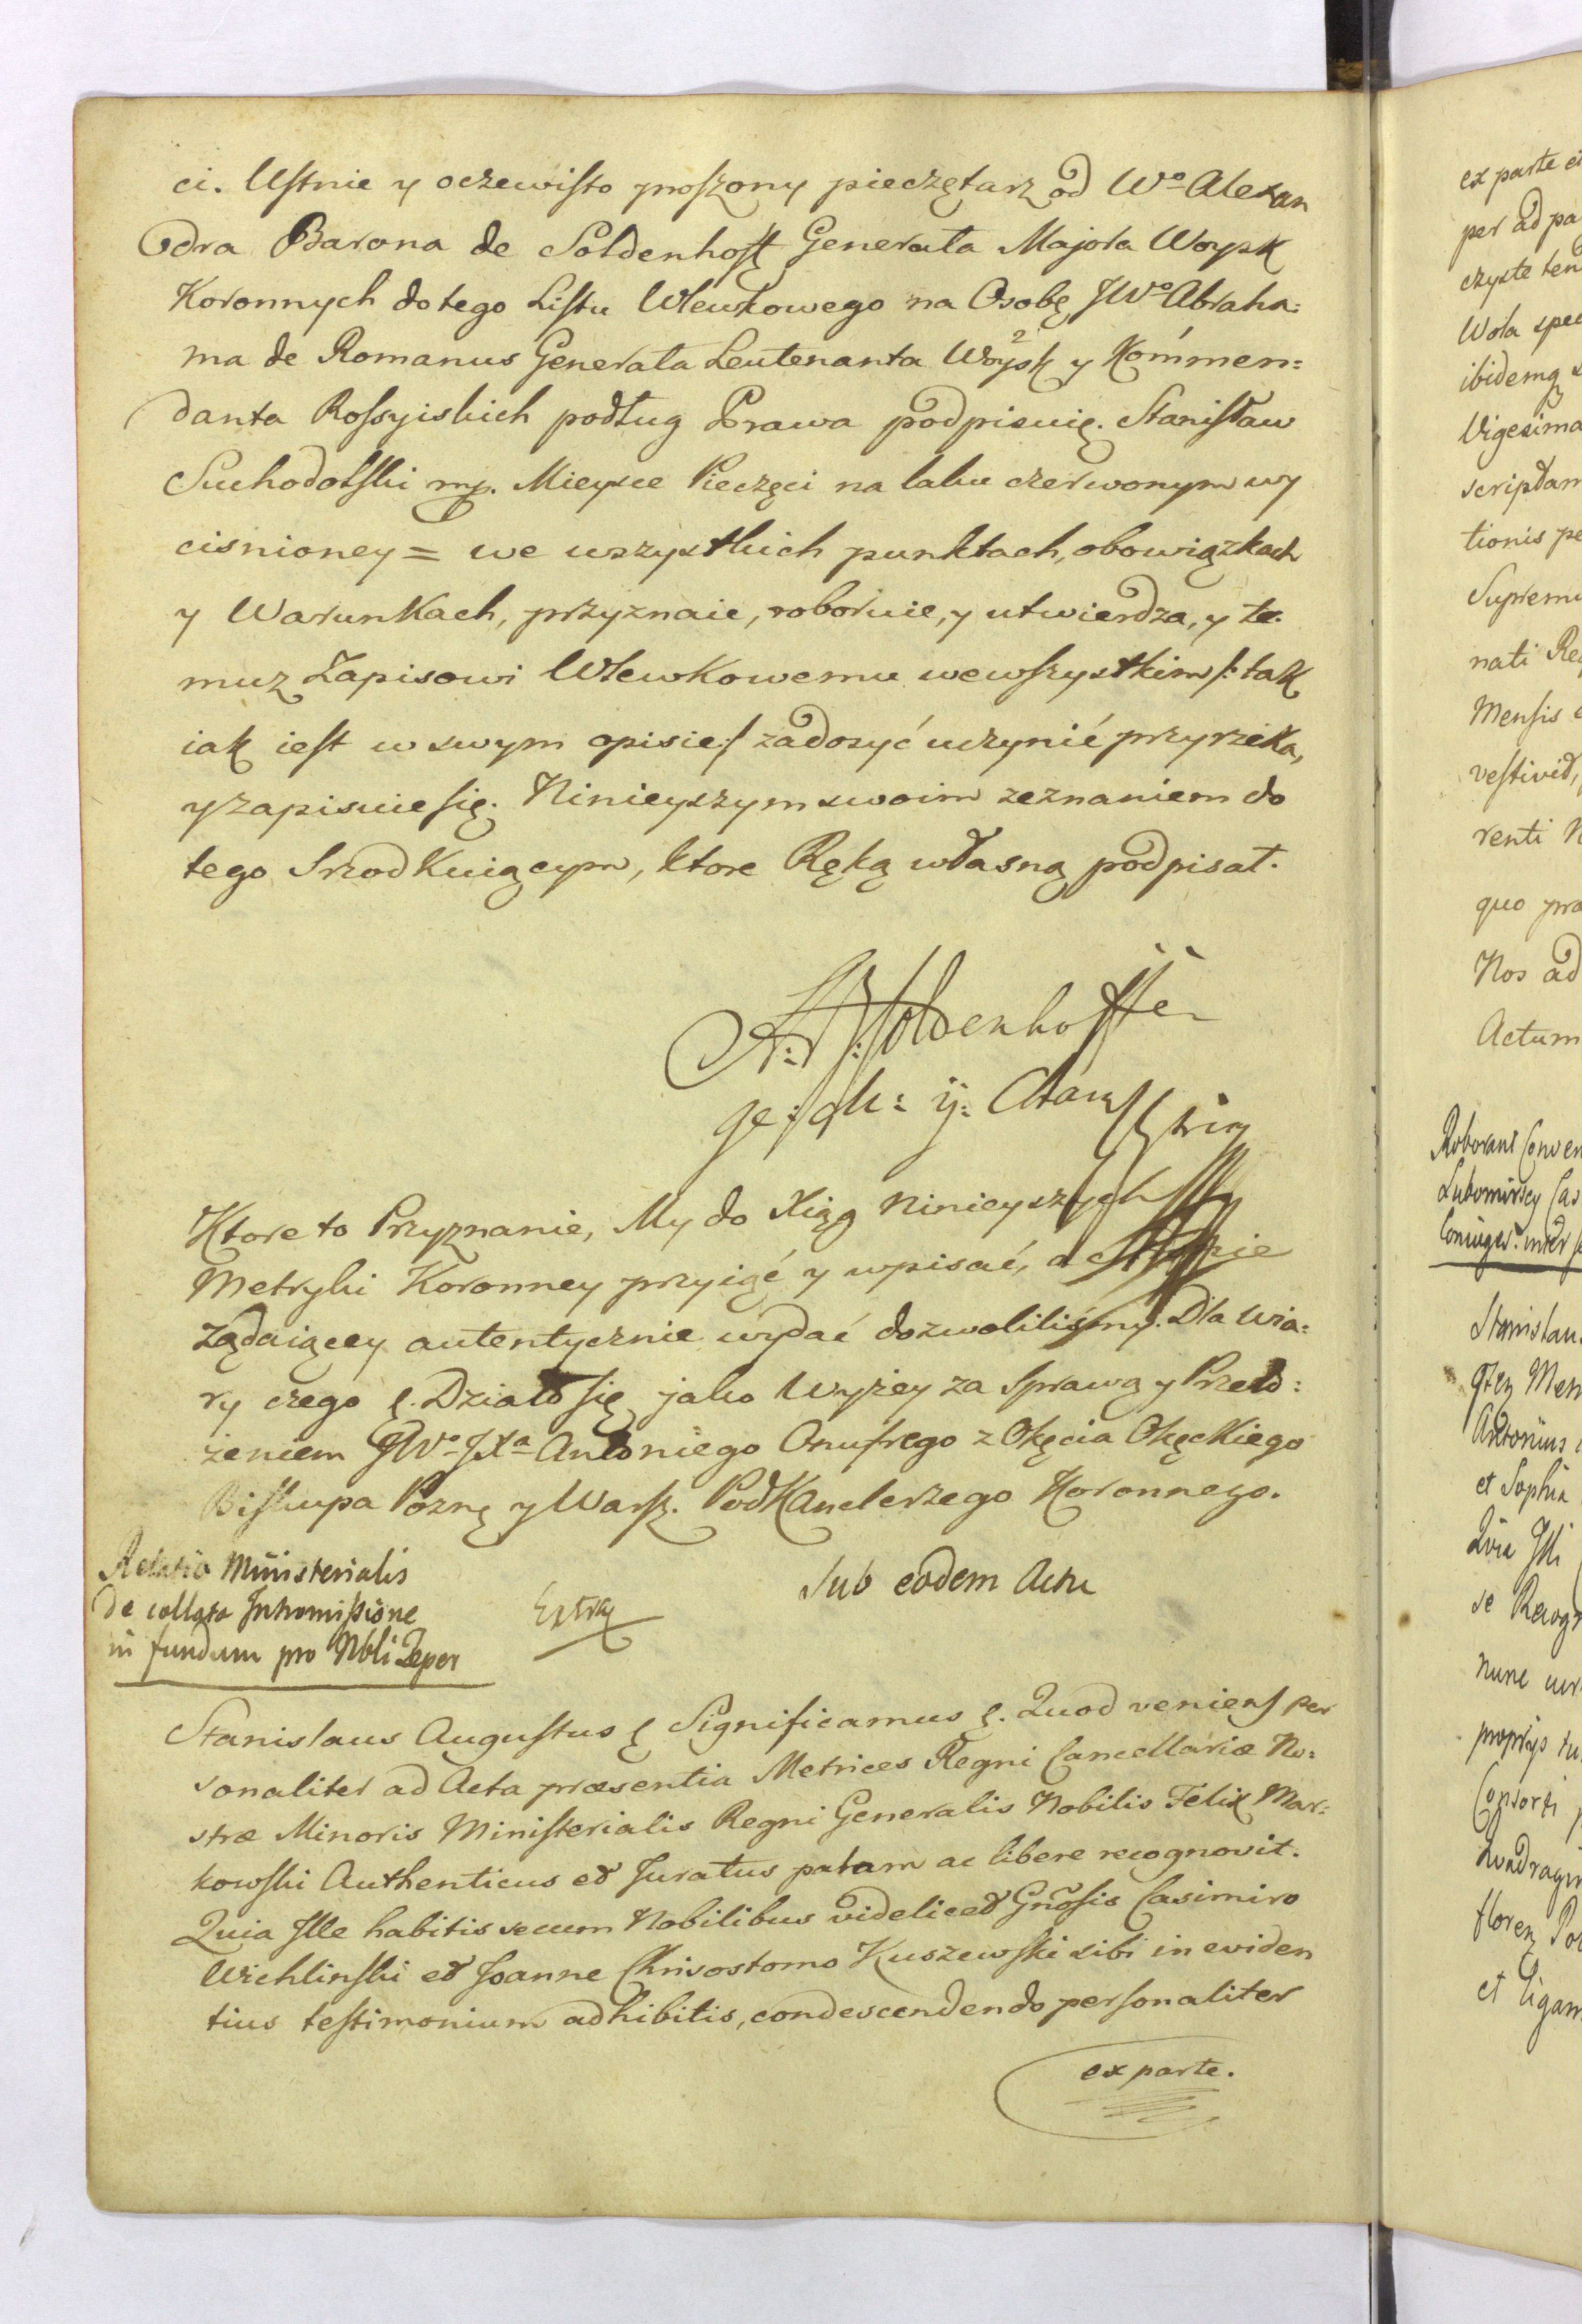 ci. Ustnie y oczewisto proszony pieczętarz od Wo Alexan
dra Barona de Soldenhoff Generała Majora Woysk
Koronnych do tego Listu Wlewkowego na Osobę JWo Abraha:
ma de Romanus Generała Leutenanta Woysk y Kommen:
danta Rossyiskich podług Prawa podpisuię. Stanisław
Suchodolski mp. Mieysce Pieczęci na laku czerwonym wy
cisnioney = we wszystkich punktach, obowiązkach
y Warunkach, przyznaie, roboruie, y utwierdza, y te:
muz Zapisowi Wlewkowemu wewszystkim /: tak
iak iest w swym opisie :/ zadosyć uczynić przyrzeka,
y zapisuie się. Ninieyszym swoim zeznaniem do
tego Srzodkuiącym, ktore Ręką własną podpisał.
A: B: Soldenhoff
Ktore to Przyznanie, My do Xiąg Ninieyszych
Metryki Koronney przyiąć y wpisać, a Stronie
Żądaiącey autentycznie wydać dozwoliliśmy. Dla wia:
ry czego &. Działo się jako Wyżey za Sprawą y Przeło:
żeniem JWo JXa Antoniego Onufrego z Okęcia Okęckiego
Biskupa Pozn: y Warsz. PodKanclerzego Koronnego.
Relatio Ministerialis
de collata Intromissione
in fundum pro Nbli Zeper
Extra
Sub eodem Actu
Stanislaus Augustus & Significamus &. Quod veniens per
sonaliter ad Acta præsentia Metrices Regni Cancellariæ No:
stræ Minoris Ministerialis Regni Generalis Nobilis Felix Mar:
kowski Authenticus et Juratus palam ac libere recognovit.
Quia Ille habitis secum Nobilibus videlicet Gnosis Casimiro
Wichlinski et Joanne Chrisostomo Kuszewski sibi in eviden
tius testimonium adhibitis, condescendendo personaliter
ex parte.
ex parte
per ad pa
czyste ten
Wola spec
ibidemq
Vigesima
scriptam
tionis pe
Supremi
nati Reg
Mensis
vestivit,
renti N
quo pra
Nos ad
Actum
Roborant Conven
Lubomirscy Cas
Coniuges inter se
Stanislau
Antonius
et Sophia
Quia Illi
se Recogn
nunc
proprys
Consorti
Quadragin
floren Pol
et ligam